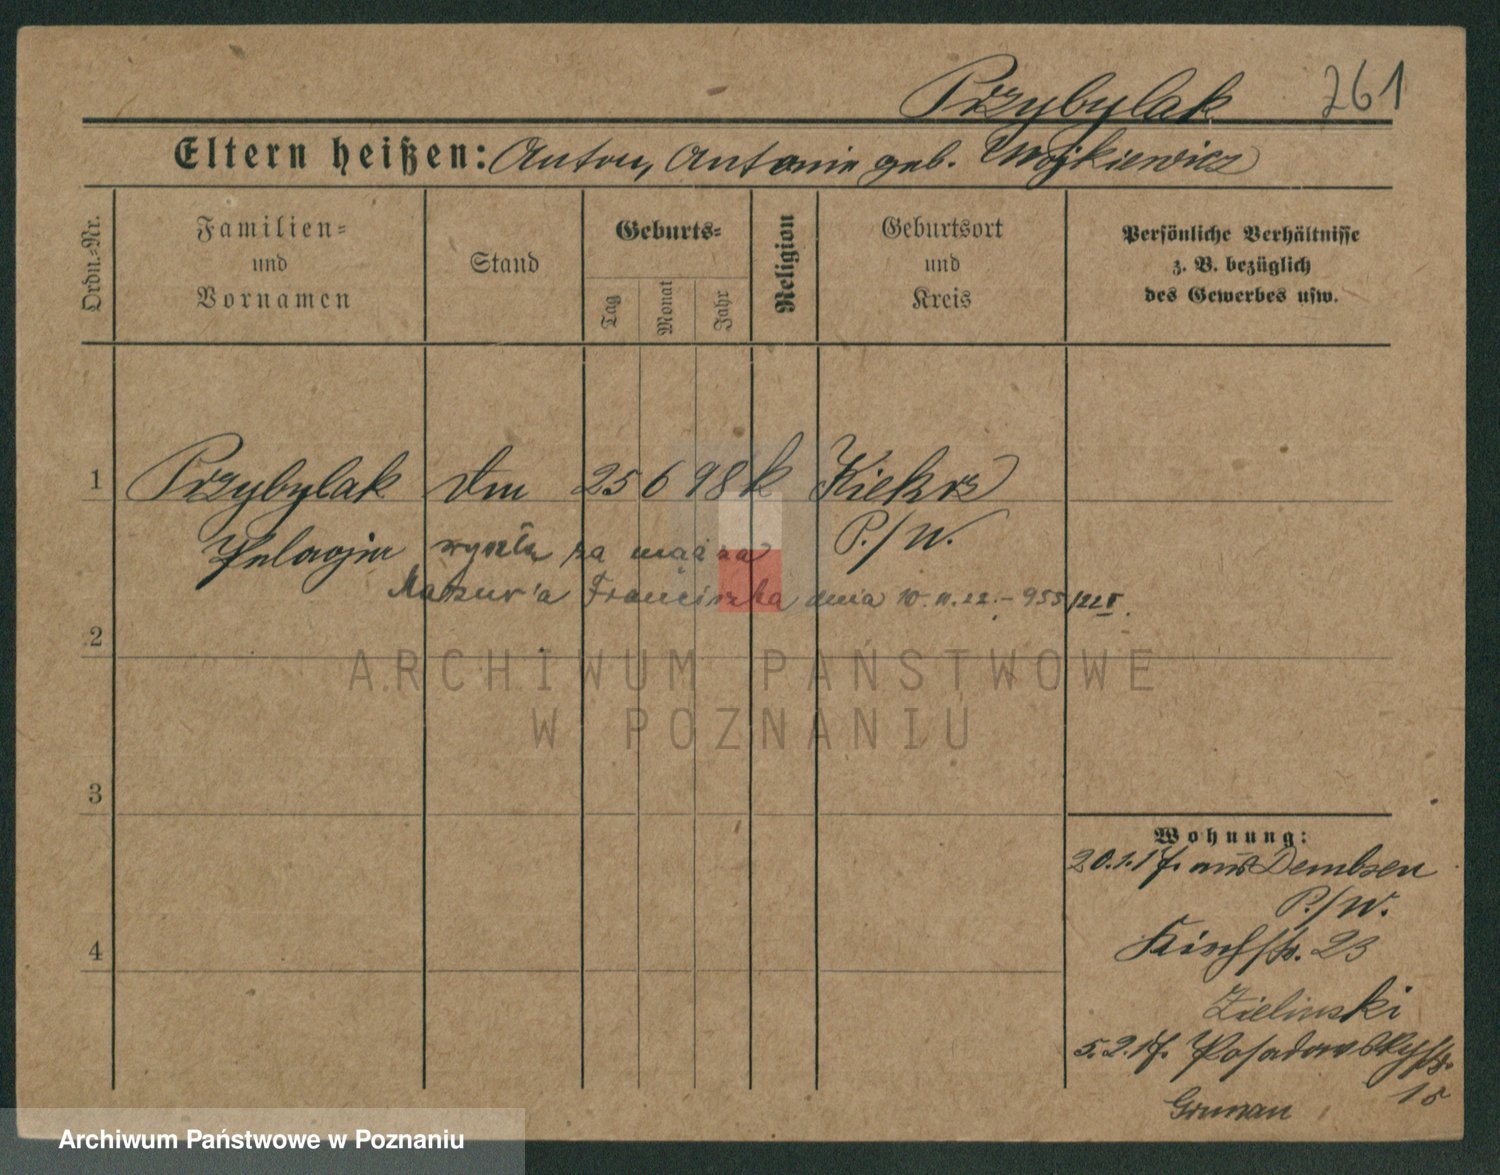 Przybylak 261
Eltern heißen: Anton, Antonie geb. Wojkiewicz
Ordn.-Nr.
Familien-
und
Vornamen
Stand
Geburts-
Tag
Monat
Jahr
Religion
Geburtsort
und
Kreis
Persönliche Verhältnisse
z. B. bezüglich
des Gewerbes usw.
1 Przybylak 25 6 98 k Kiekrz
Pelagja wyszła za męża P./W.
Mazur'a Franciszka dnia 10.11.22.– 955/22
2
ARCHIWUM PAŃSTWOWE
W POZNANIU
3
4
Wohnung:
20.1.17. aus Dembsen
P./W.
Kirchstr. 23
Zielinski
5.2.17. Posadowskystr.
15
Archiwum Państwowe w Poznaniu